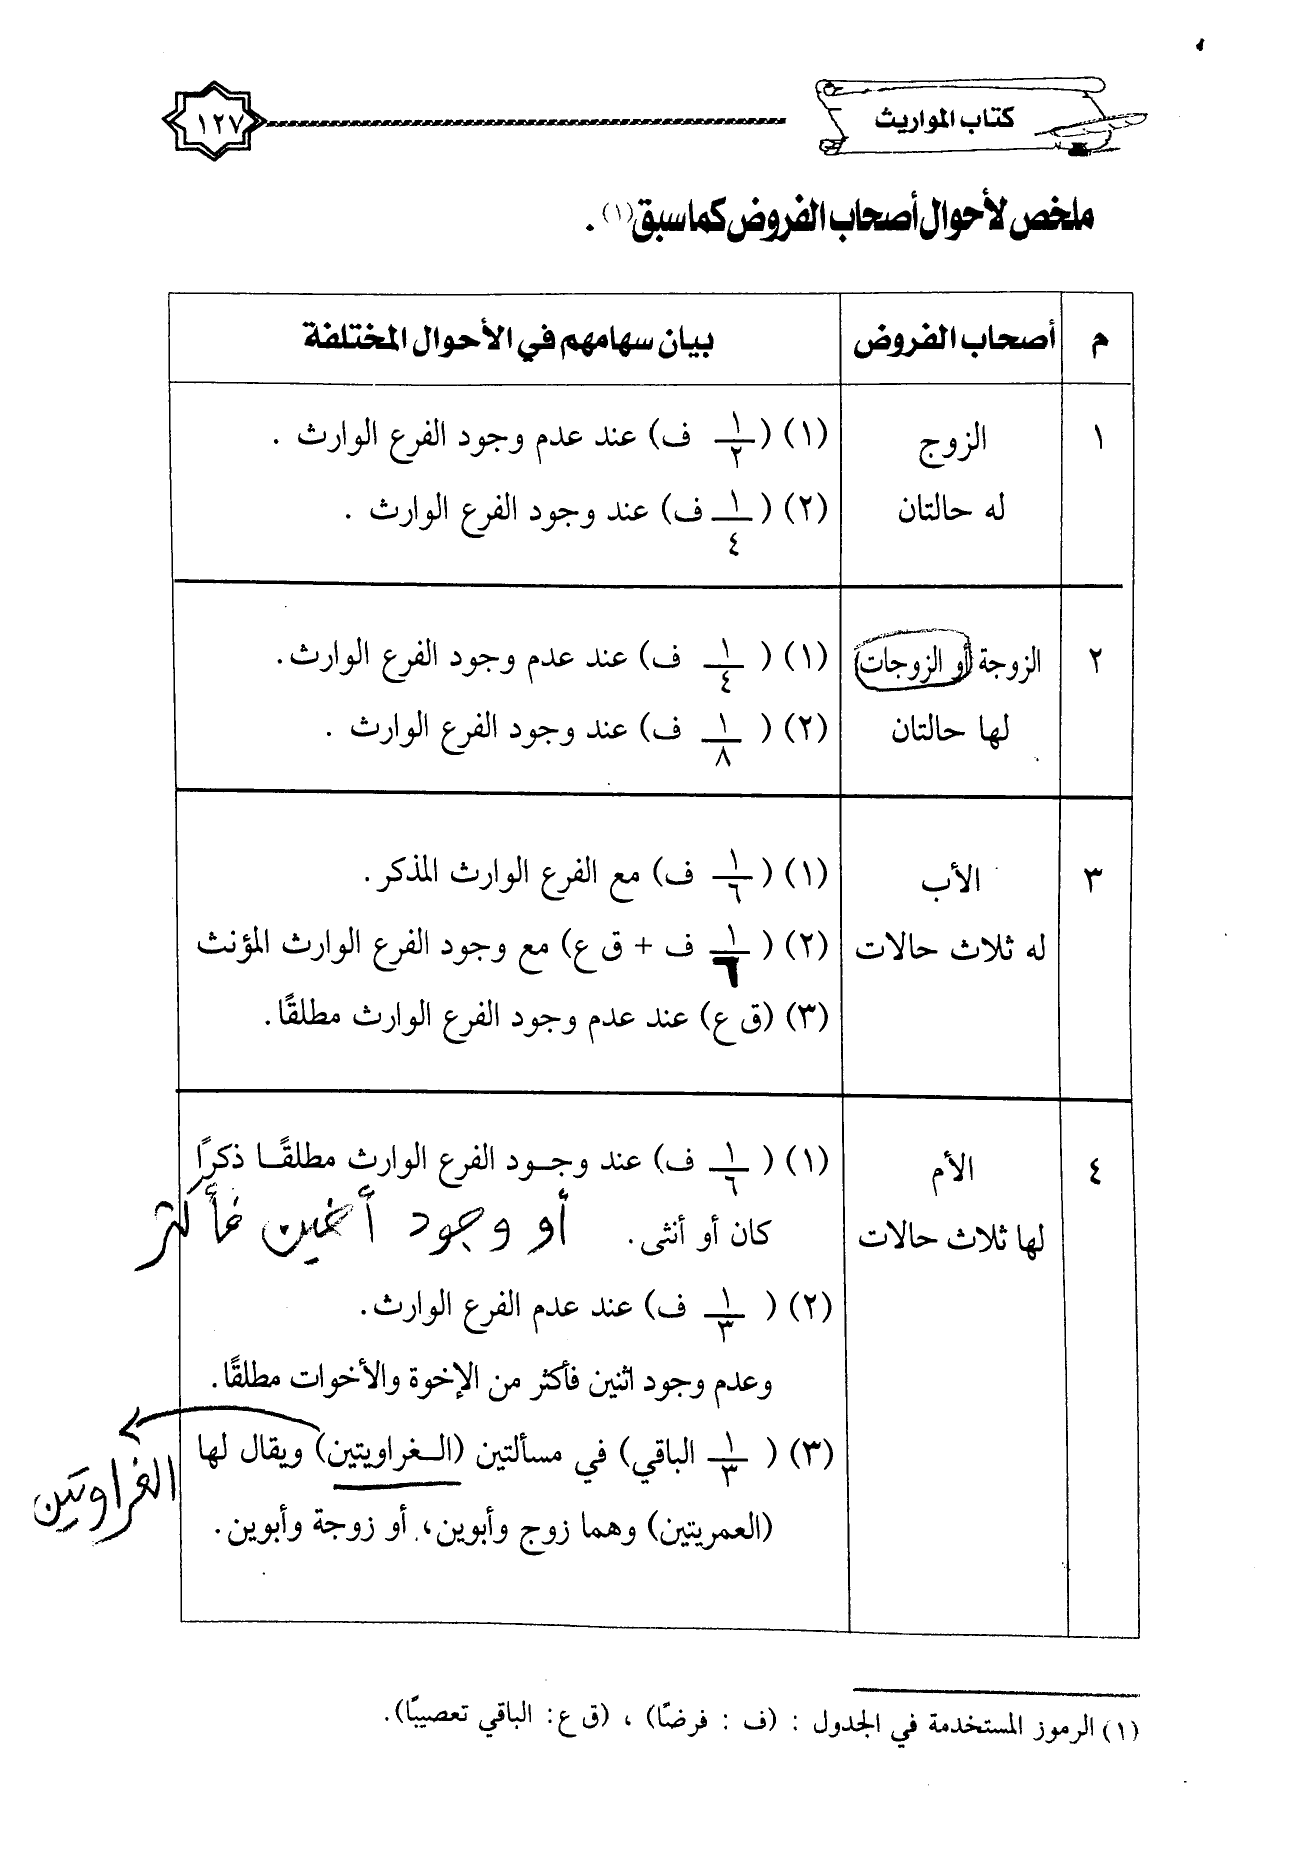 كتاب المواريث
١٢٧
ملخص لأحوال أصحاب الفروض كما سبق(١).
م أصحاب الفروض بيان سهامهم في الأحوال المختلفة
١ الزوج (١) (١/٢ ف) عند عدم وجود الفرع الوارث .
له حالتان (٢) (١/٤ ف) عند وجود الفرع الوارث .
٢ الزوجة أو الزوجات (١) (١/٤ ف) عند عدم وجود الفرع الوارث.
لها حالتان (٢) (١/٨ ف) عند وجود الفرع الوارث .
٣ الأب (١) (١/٦ ف) مع الفرع الوارث المذكر.
له ثلاث حالات (٢) (١/٦ ف + ق ع) مع وجود الفرع الوارث المؤنث
(٣) (ق ع) عند عدم وجود الفرع الوارث مطلقًا.
٤ الأم (١) (١/٦ ف) عند وجود الفرع الوارث مطلقًا ذكرًا
لها ثلاث حالات كان أو أنثى. أو وجود أخين فأكثر
(٢) (١/٣ ف) عند عدم الفرع الوارث.
وعدم وجود اثنين فأكثر من الإخوة والأخوات مطلقًا.
(٣) (١/٣ الباقي) في مسألتين (الغراويتين) ويقال لها
الغراوتين
(العمريتين) وهما زوج وأبوين، أو زوجة وأبوين.
(١) الرموز المستخدمة في الجدول : (ف : فرضًا) ، (ق ع: الباقي تعصيبًا).